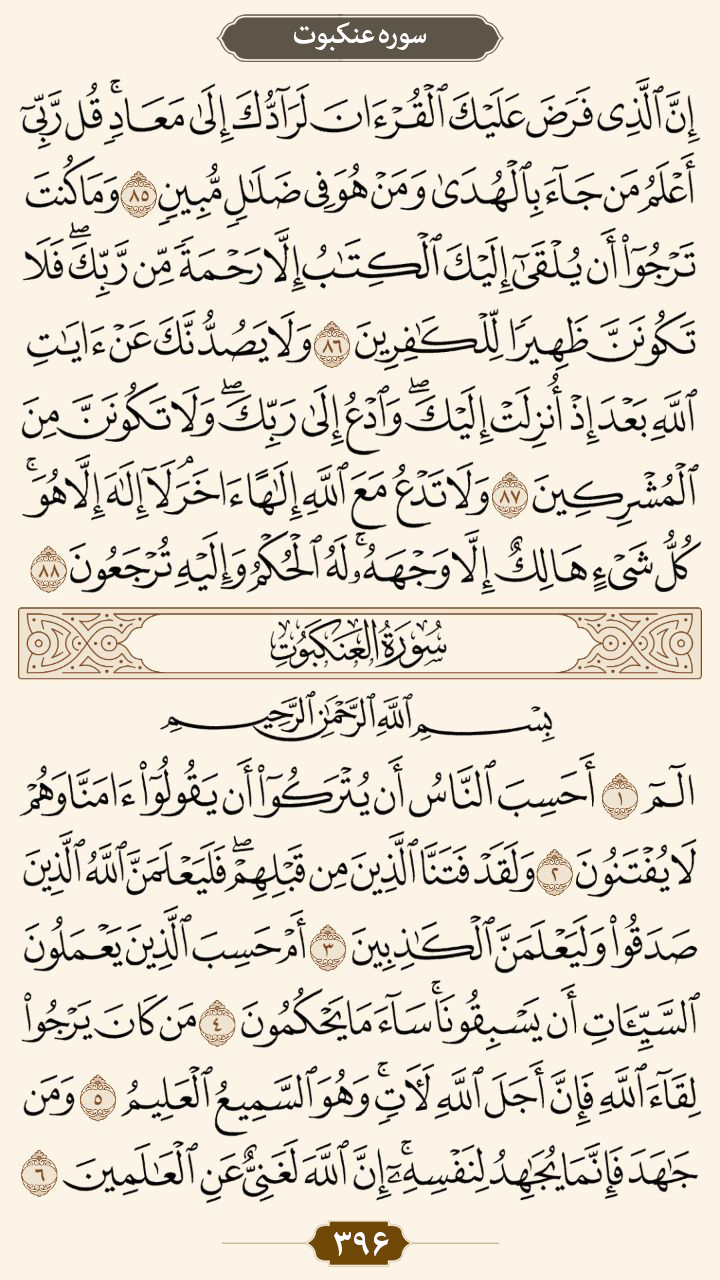 سوره عنکبوت
إِنَّ ٱلَّذِى فَرَضَ عَلَيْكَ ٱلْقُرْءَانَ لَرَآدُّكَ إِلَىٰ مَعَادٍۚ قُل رَّبِّىٓ
أَعْلَمُ مَن جَآءَ بِٱلْهُدَىٰ وَمَنْ هُوَ فِى ضَلَٰلٍ مُّبِينٍ ٨٥ وَمَا كُنتَ
تَرْجُوٓا۟ أَن يُلْقَىٰٓ إِلَيْكَ ٱلْكِتَٰبُ إِلَّا رَحْمَةً مِّن رَّبِّكَۖ فَلَا
تَكُونَنَّ ظَهِيرًا لِّلْكَٰفِرِينَ ٨٦ وَلَا يَصُدُّنَّكَ عَنْ ءَايَٰتِ
ٱللَّهِ بَعْدَ إِذْ أُنزِلَتْ إِلَيْكَۖ وَٱدْعُ إِلَىٰ رَبِّكَۖ وَلَا تَكُونَنَّ مِنَ
ٱلْمُشْرِكِينَ ٨٧ وَلَا تَدْعُ مَعَ ٱللَّهِ إِلَٰهًا ءَاخَرَۘ لَآ إِلَٰهَ إِلَّا هُوَۚ
كُلُّ شَىْءٍ هَالِكٌ إِلَّا وَجْهَهُۥۚ لَهُ ٱلْحُكْمُ وَإِلَيْهِ تُرْجَعُونَ ٨٨
سُورَةُ العَنكَبُوتِ
بِسْمِ ٱللَّهِ ٱلرَّحْمَٰنِ ٱلرَّحِيمِ
الٓمٓ ١ أَحَسِبَ ٱلنَّاسُ أَن يُتْرَكُوٓا۟ أَن يَقُولُوٓا۟ ءَامَنَّا وَهُمْ
لَا يُفْتَنُونَ ٢ وَلَقَدْ فَتَنَّا ٱلَّذِينَ مِن قَبْلِهِمْۖ فَلَيَعْلَمَنَّ ٱللَّهُ ٱلَّذِينَ
صَدَقُوا۟ وَلَيَعْلَمَنَّ ٱلْكَٰذِبِينَ ٣ أَمْ حَسِبَ ٱلَّذِينَ يَعْمَلُونَ
ٱلسَّيِّـَٔاتِ أَن يَسْبِقُونَاۚ سَآءَ مَا يَحْكُمُونَ ٤ مَن كَانَ يَرْجُوا۟
لِقَآءَ ٱللَّهِ فَإِنَّ أَجَلَ ٱللَّهِ لَـَٔاتٍۚ وَهُوَ ٱلسَّمِيعُ ٱلْعَلِيمُ ٥ وَمَن
جَٰهَدَ فَإِنَّمَا يُجَٰهِدُ لِنَفْسِهِۦٓۚ إِنَّ ٱللَّهَ لَغَنِىٌّ عَنِ ٱلْعَٰلَمِينَ ٦
۳۹۶